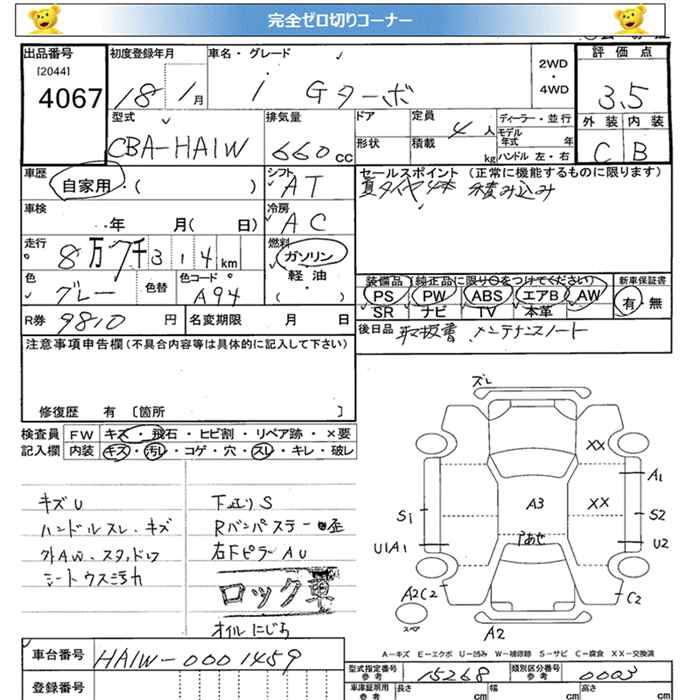 完全ゼロ切りコーナー
出品番号 初度登録年月 車名・グレード 2WD・4WD 評価点
[2044]
4067 18 1月 i Gターボ 3.5
型式 排気量 ドア 定員 ディーラー・並行 外装 内装
CBA-HA1W 660cc 形状 積載 4人 kg モデル年式 年 ハンドル 左・右 C B
車歴 シフト セールスポイント (正常に機能するものに限ります)
自家用・( ) AT 夏タイヤ4本 積み込み
車検 冷房
年 月( 日) AC
走行 燃料
8万7千314km ガソリン
軽油
( )
色 色替 色コード
グレー A94
装備品 (純正品に限り○をつけてください) 新車保証書
PS PW ABS エアB AW 有・無
SR ナビ TV 本革
R券 9810円 名変期限 月 日
後日品 取扱書 メンテナンスノート
注意事項申告欄 (不具合内容等は具体的に記入して下さい)
修復歴 有 [箇所 ]
検査員 FW キズ・飛石・ヒビ割・リペア跡・×要
記入欄 内装 キズ・汚レ・コゲ・穴・スレ・キレ・破レ
キズU
ハンドルスレ・キズ
外AW・スタッドレス
シートウスヨゴレ
下廻りS
Rバンパステー歪
右FピラーAU
ロック車
オイルにじみ
ズレ
XX
A1
A3
XX
S1
S2
U1A1
U2
A2C2
C2
スペア
A2
A-キズ E-エクボ U-凹み W-補修跡 S-サビ C-腐食 XX-交換済
車台番号 HA1W-0001459
登録番号
型式指定番号 参考 15268 類別区分番号 参考 0003
車庫証明用 参考 長さ cm 幅 cm 高さ cm